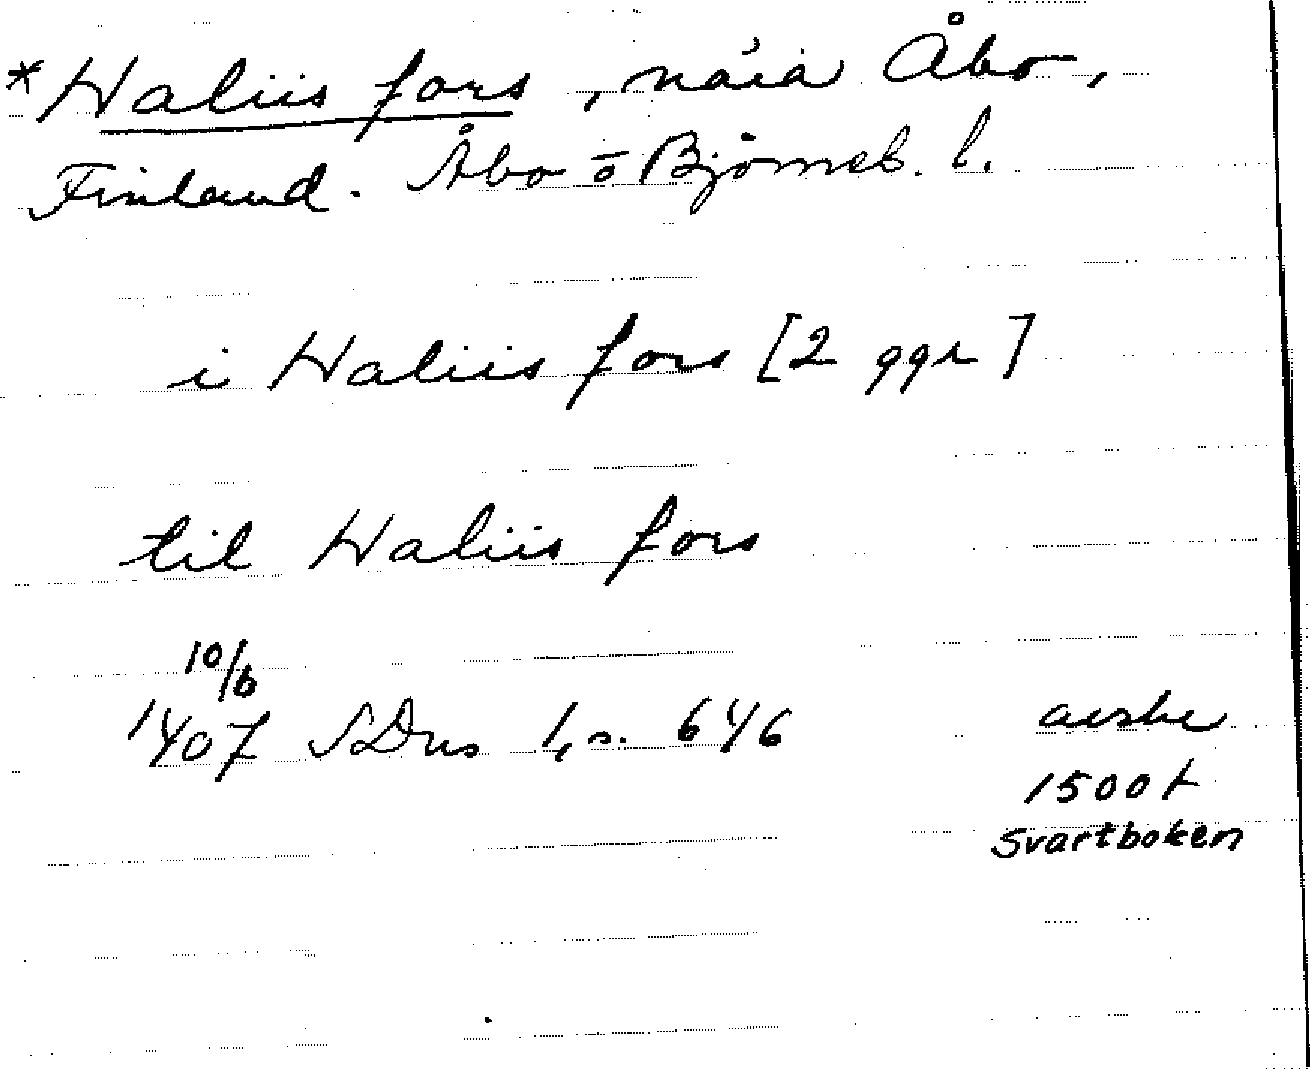 *Haliis fors, nära Åbo,
Finland. Åbo o Björneb. l.
i Haliis fors [2 ggr]
til Haliis fors
10/6
1407 SDns 1, s. 646
avskr
1500 t
Svartboken